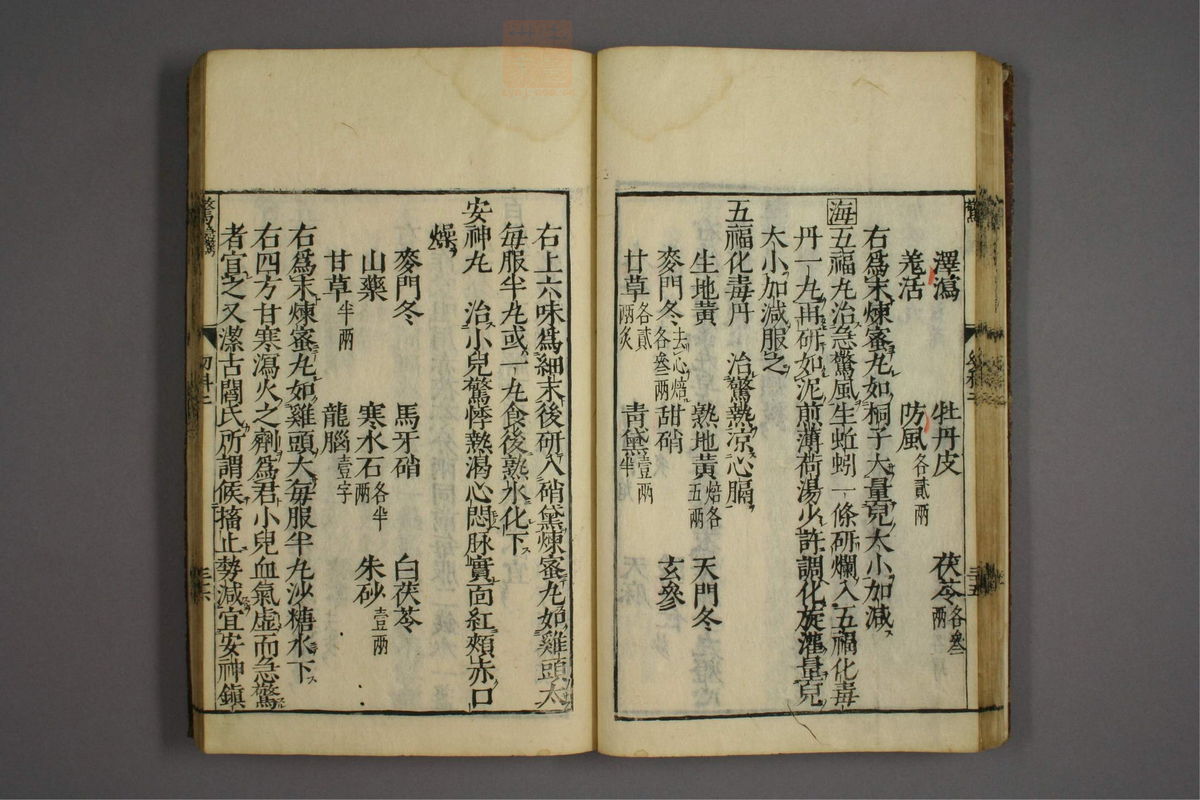 澤瀉 牡丹皮 茯苓各叄兩
羗活 防風各貳兩
右爲末煉蜜丸如桐子大量兒大小加減
海五福丸治急驚風生蚯蚓一條研爛入五福化毒
丹一丸再研如泥煎薄荷湯少許調化旋灌量兒
大小加減服之
五福化毒丹 治驚熱涼心膈
生地黄 熟地黄焙各五兩 天門冬
麥門冬去心焙各叄兩 甜硝 玄參
甘草各貳兩炙 青黛壹兩半
右上六味爲細末後研入硝黛煉蜜丸如雞頭大
每服半丸或一丸食後熟水化下
安神丸 治小兒驚悸熱渴心悶脉實面紅頰赤口
燥
麥門冬 馬牙硝 白茯苓
山藥 寒水石各半兩 朱砂壹兩
甘草半兩 龍腦壹字
右爲末煉蜜丸如雞頭大每服半丸沙糖水下
右四方甘寒瀉火之劑爲君小兒血氣虛而急驚
者宜之又潔古閻氏所謂候搐止勢減宜安神鎮
幼科二
三六